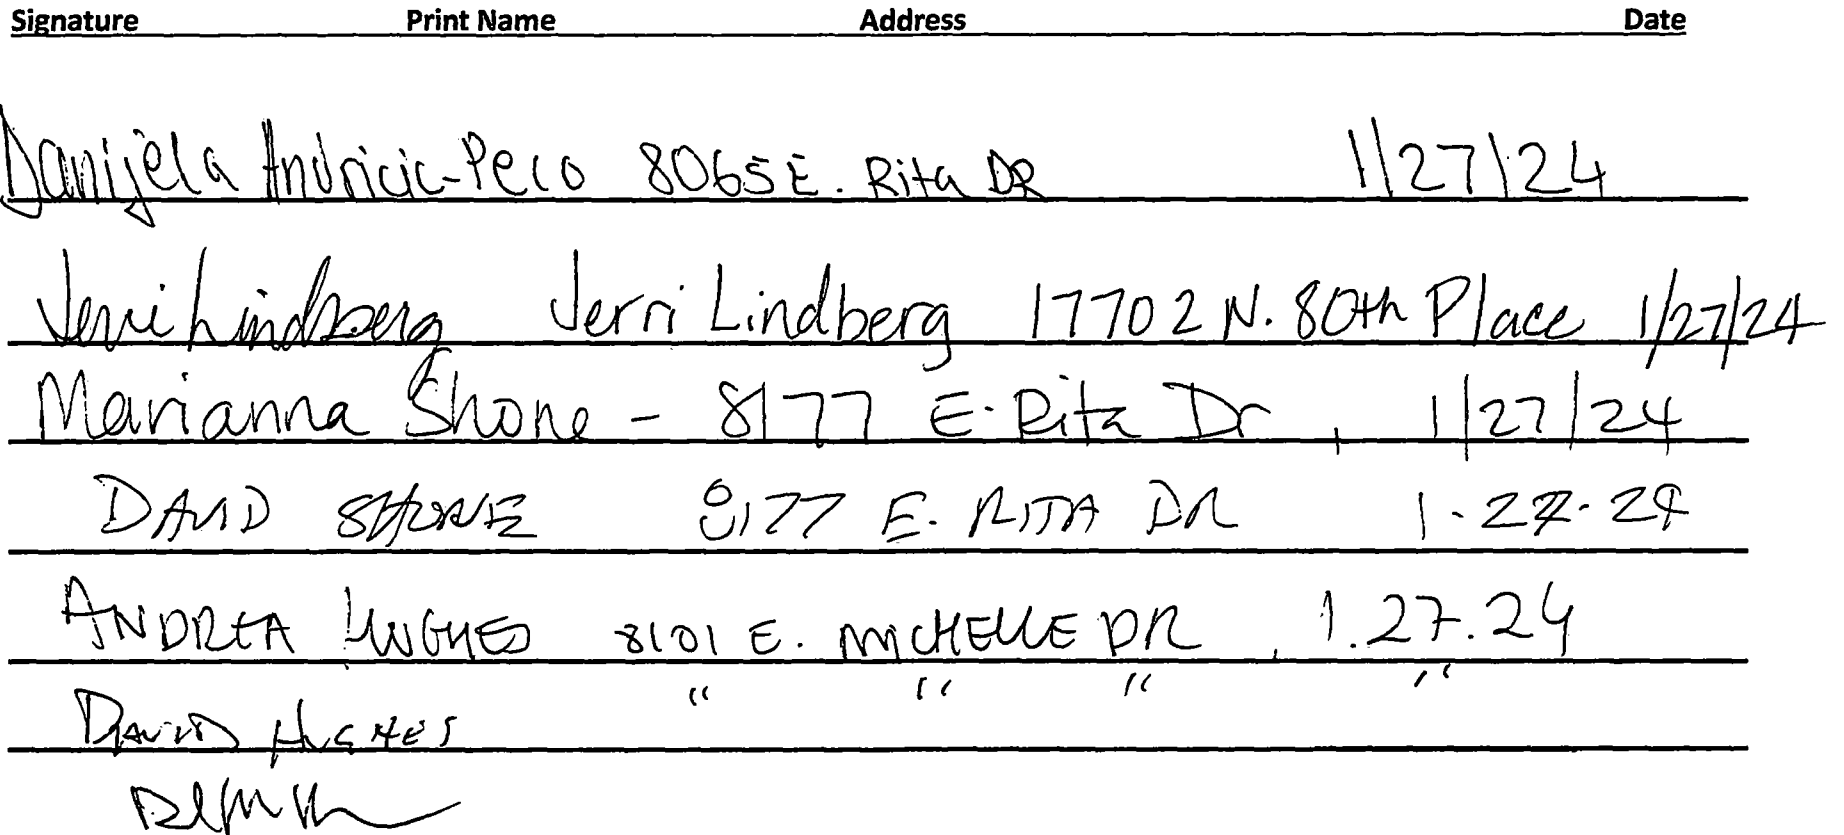 Signature Print Name Address Date
Danijela Andricic-Peco 8065 E. Rita DR 1/27/24
Jerri Lindberg Jerri Lindberg 17702 N. 80th Place 1/27/24
Marianna Shone - 8177 E. Rita Dr, 1/27/24
DAVID SHONE 8177 E. RITA DR 1-27-24
ANDREA HUGHES 8101 E. MICHELLE DR, 1.27.24
" " " "
DAVID HUGHES